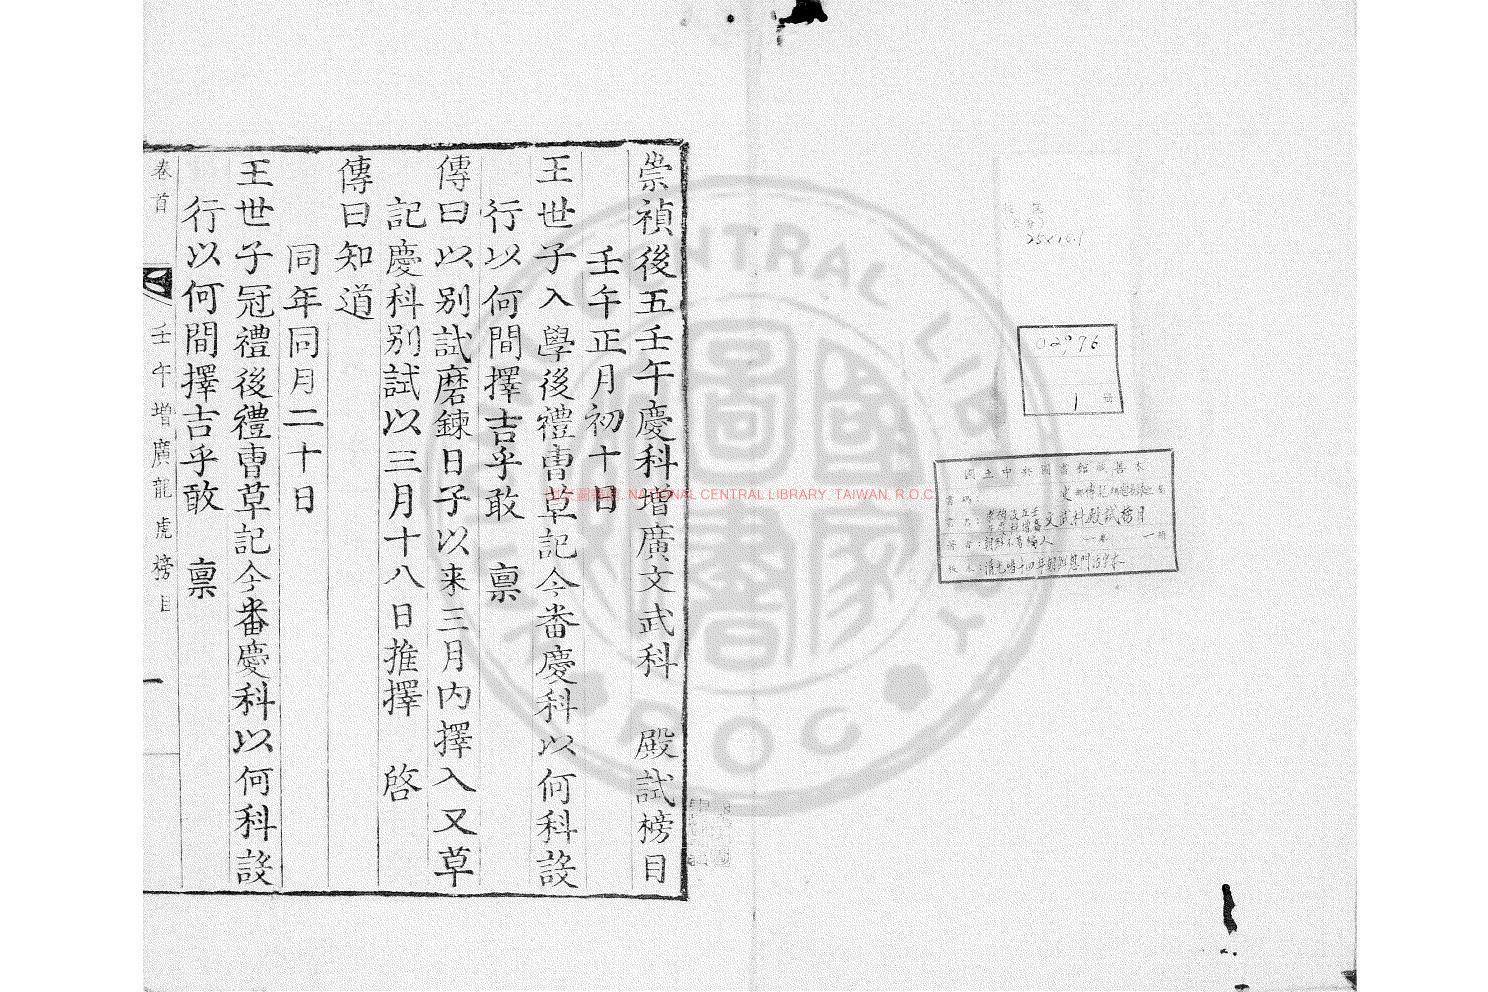 崇禎後五壬午慶科增廣文武科 殿試榜目
壬午正月初十日
王世子入學後禮曺草記今番慶科以何科設
行以何間擇吉乎敢 禀
傳曰以别試磨鍊日子以来三月内擇入又草
記慶科别試以三月十八日推擇 啓
傳曰知道
同年同月二十日
王世子冠禮後禮曺草記今番慶科以何科設
行以何間擇吉乎敢 禀
卷首
壬午增廣龍虎榜目
一
02996
1 冊
國立中央圖書館藏善本
文武科殿試榜目
NATIONAL CENTRAL LIBRARY, TAIWAN, R.O.C.